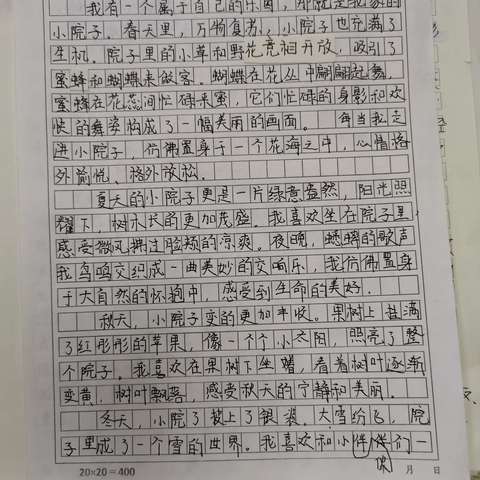 我有一个属于自己的乐园，那就是我家的
小院子。春天里，万物复苏，小院子也充满了
生机。院子里的小草和野花竞相开放，吸引了
蜜蜂和蝴蝶来做客。蝴蝶在花丛中翩翩起舞，
蜜蜂在花蕊间忙碌采蜜，它们忙碌的身影和欢
快的舞姿构成了一幅美丽的画面。每当我走
进小院子，仿佛置身于一个花海之中，心情格
外愉悦、格外放松。
夏天的小院子更是一片绿意盎然，阳光照
耀下，树木长的更加茂盛。我喜欢坐在院子里，
感受微风拂过脸颊的凉爽。夜晚，蟋蟀的歌声
和鸟鸣交织成一曲美妙的交响乐，我仿佛置身
于大自然的怀抱中，感受到生命的美好。
秋天，小院子变的更加丰收。果树上挂满
了红彤彤的苹果，像一个个小太阳，照亮了整
个院子。我喜欢在果树下坐着，看着树叶逐渐
变黄，树叶飘落，感受秋天的宁静和美丽。
冬天，小院子披上了银装。大雪纷飞，院
子里成了一个雪的世界。我喜欢和小伙伴们一
20×20=400 月 日